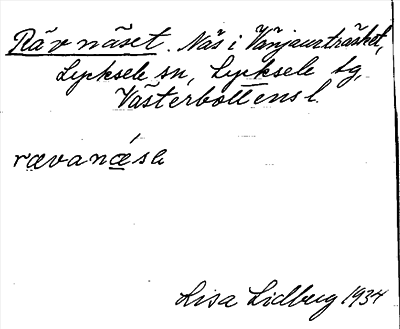 Rävnäset. Näs i Vänjaurträsket,
Lycksele sn, Lycksele lg,
Västerbottens l.
Lisa Lidberg 1934